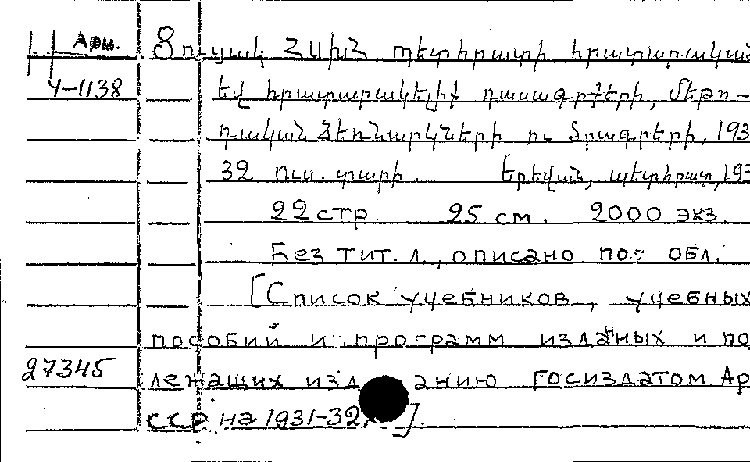 Арм. Ցուցակ ՀՍԽՀ պետհրատի հրատարակած
4-1138 եվ հրատարակելիք դասագրքերի, մեթո-
դական ձեռնարկների ու ծրագրերի, 193
32 ուս. տարի. Երեվան, պետհրատ, 193
22 стр 25 см. 2000 экз.
Без тит. л., описано по обл.
[Список учебников, учебных
пособий и программ изданных и по
27345 лежащих изданию Госиздатом Ар
ССР на 1931-32. ].